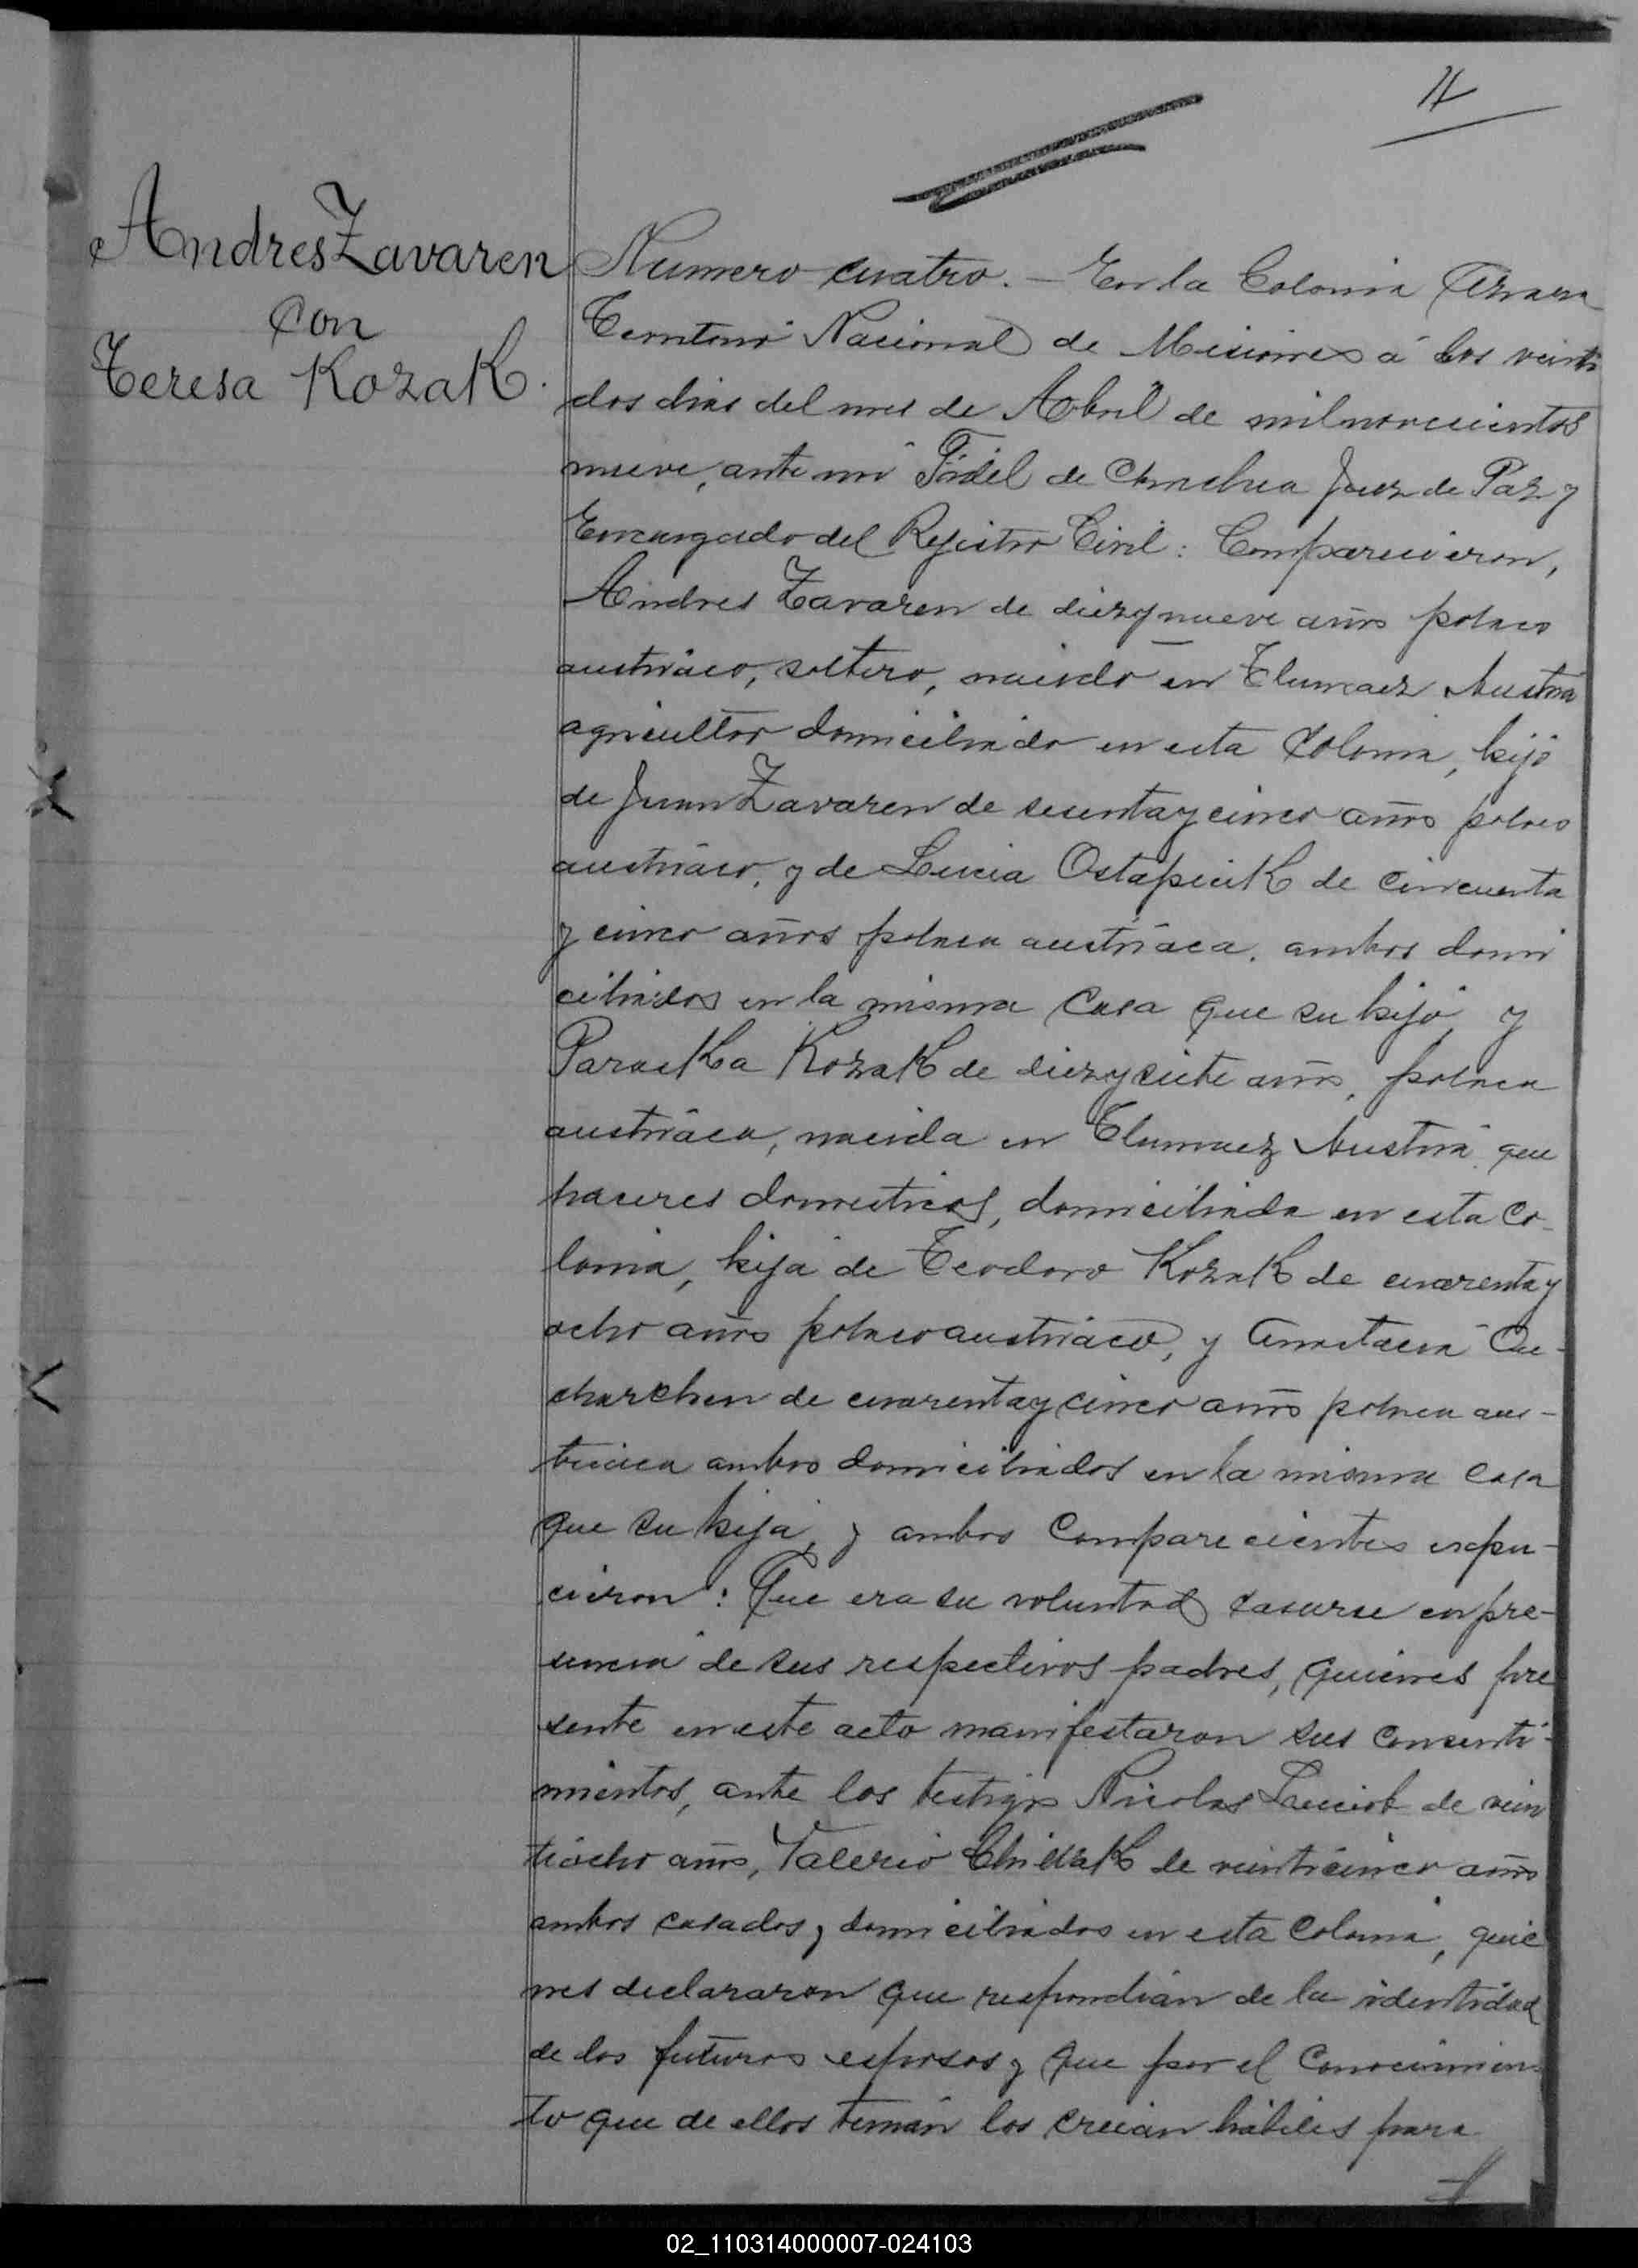 4
Andres Zavaren
con
Teresa Kozak.
Numero cuatro. — En la Colonia Azara
Territorio Nacional de Misiones á los veinti
dos dias del mes de Abril de mil novecientos
nueve, ante mi Fidel de Juez de Paz y
Encargado del Rejistro Civil: Comparecieron,
Andres Zavaren de diez y nueve años polaco
austriaco, soltero, nacido en Tlumacz Austria
agricultor domiciliado en esta Colonia, hijo
de Juan Zavaren de sesenta y cinco años polaco
austriaco, y de Lucia Ostapiuk de cincuenta
y cinco años polaca austriaca, ambos domi
ciliados en la misma Casa que su hijo y
Paraska Kozak de diez y siete años, polaca
austriaca, nacida en Tlumacz Austria, que
haceres domesticos, domiciliada en esta Co-
lonia, hija de Teodoro Kozak de cuarenta y
ocho años polaco austriaco, y Anastacia
de cuarenta y cinco años polaca aus-
triaca ambos domiciliados en la misma casa
que su hija, y ambos Comparecientes expu-
cieron: Que era su voluntad casarse en pre-
sencia de sus respectivos padres, quienes pre
sente en este acto manifestaron sus Consenti-
mientos, ante los testigos Nicolas de vein
tiocho años, Valerio de veinticinco años
ambos casados y domiciliados en esta Colonia, quie
nes declararon que respondian de la identidad
de los futuros esposos y que por el Conocimien-
to que de ellos tenian los creian habiles para
02_110314000007-024103